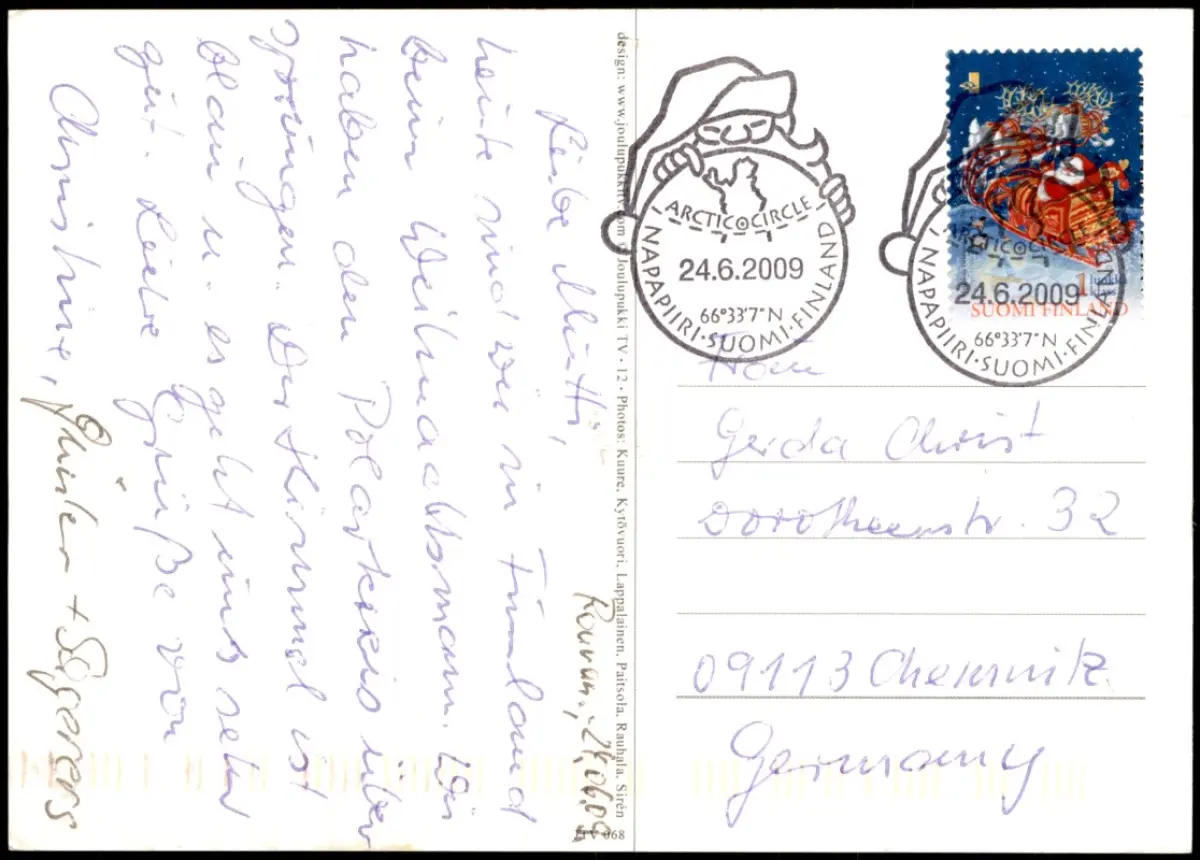 Rovan., 24.06.09
Liebe Mutti,
heute sind wir in Finnland
beim Weihnachtsmann. Wir
haben den Polarkreis über
sprungen. Der Himmel ist
blau u. es geht uns sehr
gut. Liebe Grüße von
Christine, Günter +
design: www.joulupukkitv.com © Joulupukki TV · 12 · Photos: Kuure, Kytövuori, Lappalainen, Paitsola, Rauhala, Sirén
JTV 068
ARCTIC CIRCLE
24.6.2009
66°33'7" N
NAPAPIIRI · SUOMI · FINLAND
1
SUOMI FINLAND
ARCTIC CIRCLE
24.6.2009
66°33'7" N
NAPAPIIRI · SUOMI · FINLAND
Frau
Gerda Christ
Dorotheenstr. 32
09113 Chemnitz
Germany